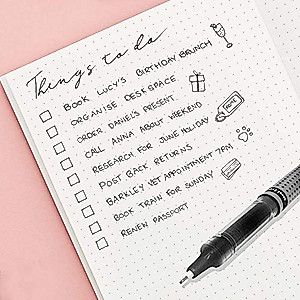 Things to do
BOOK LUCY'S BIRTHDAY BRUNCH
ORGANISE DESKSPACE
ORDER DANIELS PRESENT.
CALL ANNA ABOUT WEEKEND
RESEARCH FOR JUNE HOLIDAY
POST BACK RETURNS
BARKLEY VET APPOINTMENT 7PM
BOOK TRAIN FOR SUNDAY
RENEW PASSPORT